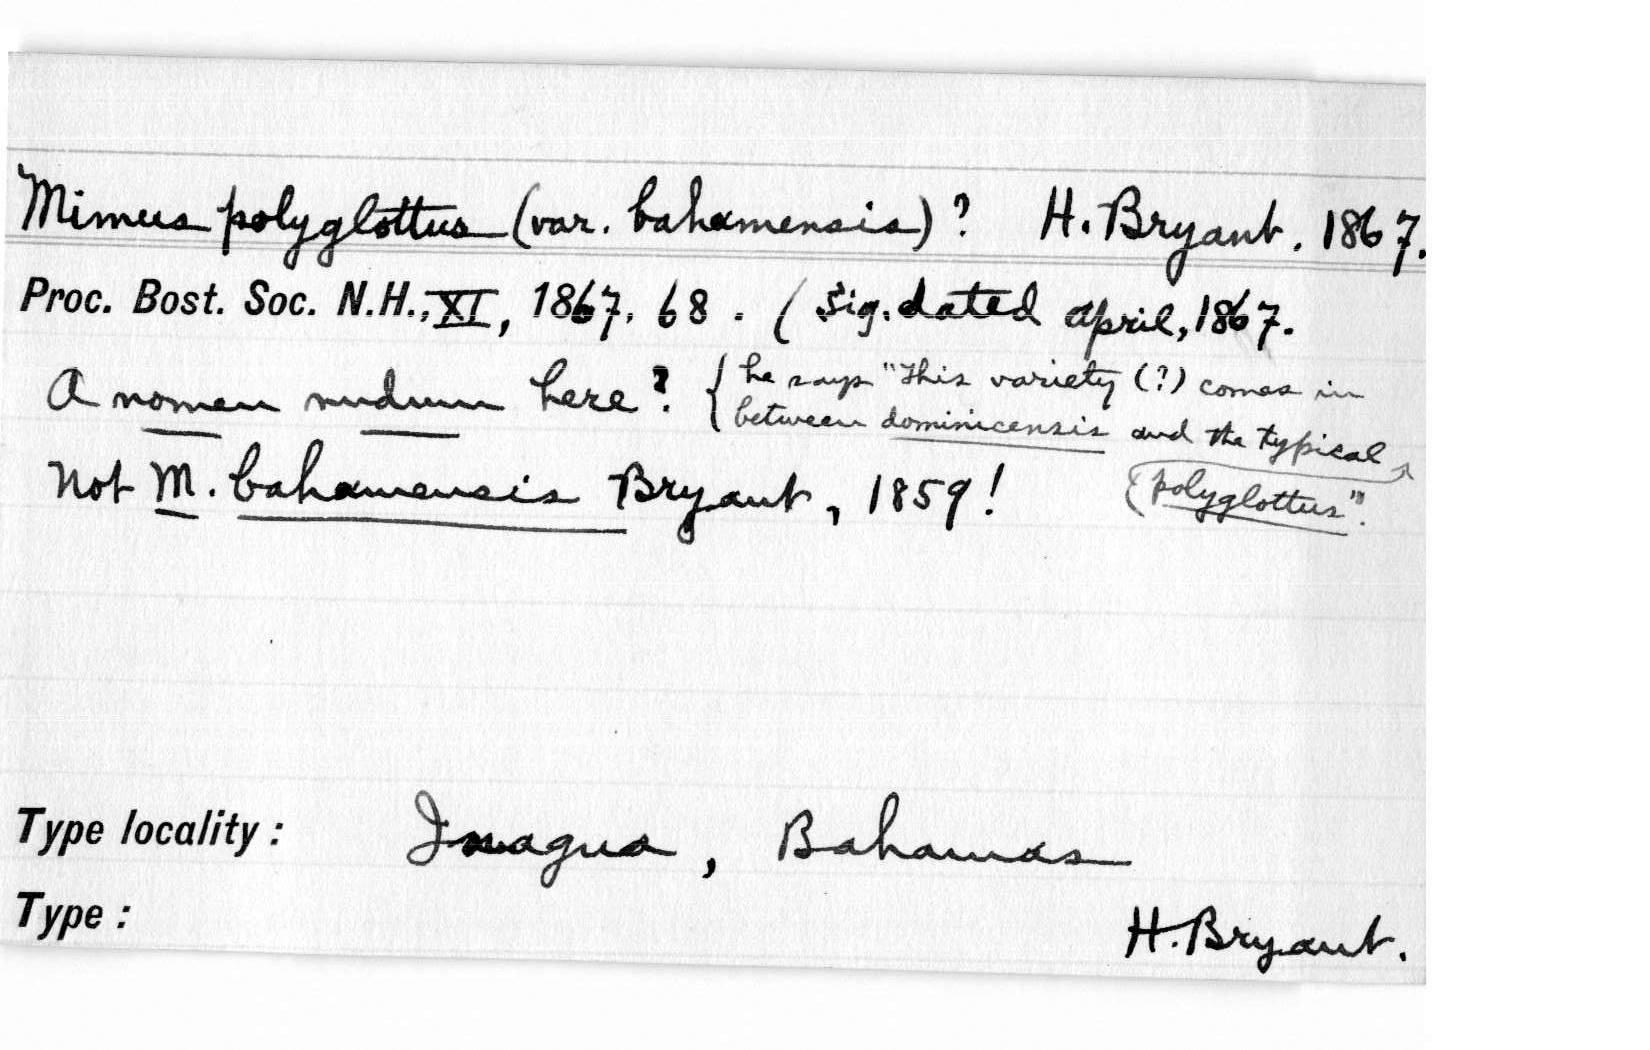 Mimus polyglottus (var. bahamensis)? H. Bryant. 1867.
Proc. Bost. Soc. N.H., XI, 1867, 68. (Sig. dated April, 1867.
A nomen nudum here? { he says "This variety (?) comes in
between dominicensis and the typical
(polyglottus".
Not M. bahamensis Bryant, 1859!
Type locality: Inagua, Bahamas
Type:
H. Bryant.